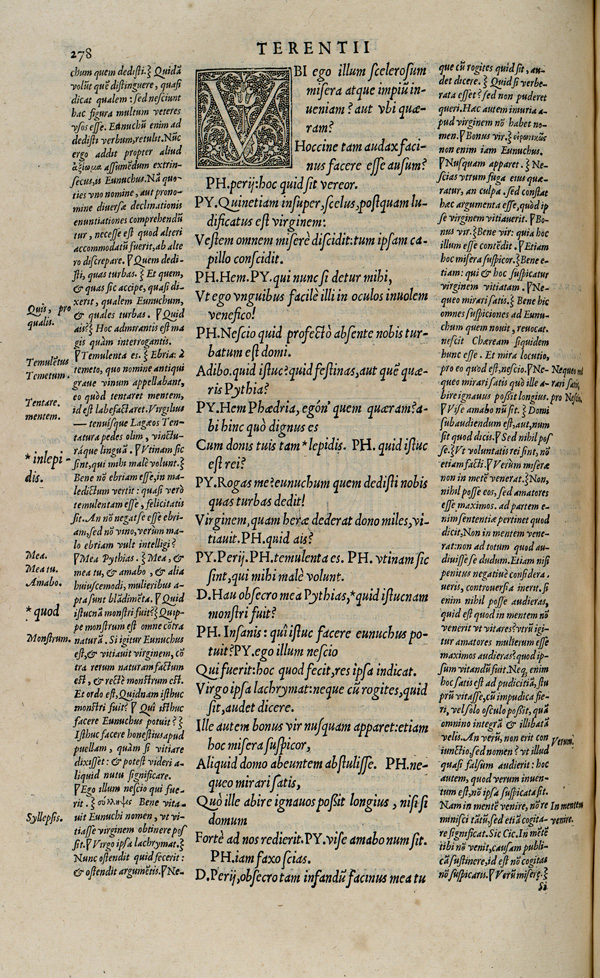 278
TERENTII
chum quem dedisti. ξ Quidā
volūt quē distinguere, quasi
dicat qualem: sed nesciunt
hac figura multum veteres
vsos esse. Eunuchū enim ad
dedisti verbum, retulit. Nūc
ergo addit propter aliud
ἀξίωμα assumēdum extrin-
secus, is Eunuchus. Nā quo-
ties vno nomine, aut prono-
mine diuersæ declinationis
enuntiationes comprehendū
tur, necesse est quod alteri
accommodatū fuerit, ab alte
ro discrepare. ¶ Quem dedi-
sti, quas turbas. ξ Et quem,
& quas sic accipe, quasi di-
xerit, qualem Eunuchum,
& quales turbas. ¶ Quid
ais? ξ Hoc admirantis est ma
gis quàm interrogantis.
¶ Temulenta es. ξ Ebria: à
temeto, quo nomine antiqui
graue vinum appellabant,
eo quòd tentaret mentem,
id est labefactaret. Virgilius
—tenuisque Lageos Ten-
tatura pedes olim, vinctu-
ráque linguā. ¶ Vtinam sic
sint, qui mihi malè volunt. ξ
Bene nō ebriam esse, in ma-
ledictum vertit: quasi verò
temulentam esse, felicitatis
sit. An nō negat se esse ebri-
am, sed nō vino, verùm ma-
lo ebriam vult intelligi?
¶ Mea Pythias. ξ Mea, &
mea tu, & amabo, & alia
huiuscemodi, mulieribus a-
pta sunt blādimēta. ¶ Quid
istucnā monstri fuit? ξ Quip-
pe monstrum est omne cōtra
naturā. Si igitur Eunuchus
est, & vitiauit virginem, cō
tra rerum naturam factum
est, & rectè monstrum est.
Et ordo est, Quidnam isthuc
monstri fuit? ¶ Qui isthuc
facere Eunuchus potuit? ξ
Isthuc facere honestius apud
puellam, quàm si vitiare
dixisset: & potest videri a-
liquid nutu significare.
¶ Ego illum nescio qui fue-
rit. ξ σύλληψις Bene vita-
uit Eunuchi nomen, vt vi-
tiasse virginem obtinere pos
sit. ¶ Virgo ipsa lachrymat. ξ
Nunc ostendit quid fecerit:
& ostendit argumētis. ¶ Ne-
Quis, pro
qualis.
Temulētus
Temetum.
Tentare.
mentem.
*inlepi-
dis.
Mea.
Mea tu.
Amabo.
*quod
Monstrum.
Syllepsis.
VBI ego illum scelerosum
misera atque impiū in-
ueniam? aut vbi quæ-
ram?
Hoccine tam audax faci-
nus facere esse ausum?
PH. perij: hoc quid sit vereor.
PY. Quinetiam insuper, scelus, postquam lu-
dificatus est virginem:
Vestem omnem miserè discidit: tum ipsam ca-
pillo conscidit.
PH. Hem. PY. qui nunc si detur mihi,
Vt ego vnguibus facilè illi in oculos inuolem
venefico!
PH. Nescio quid profectò absente nobis tur-
batum est domi.
Adibo. quid istuc? quid festinas, aut quē quæ-
ris Pythia?
PY. Hem Phædria, egón' quem quæram? a-
bi hinc quò dignus es
Cum donis tuis tam *lepidis. PH. quid istuc
est rei?
PY. Rogas me? eunuchum quem dedisti nobis
quas turbas dedit!
Virginem, quam heræ dederat dono miles, vi-
tiauit. PH. quid ais?
PY. Perij. PH. temulenta es. PH. vtinam sic
sint, qui mihi malè volunt.
D. Hau obsecro mea Pythias, *quid istucnam
monstri fuit?
PH. Insanis: quī istuc facere eunuchus po-
tuit? PY. ego illum nescio
Qui fuerit: hoc quod fecit, res ipsa indicat.
Virgo ipsa lachrymat: neque cū rogites, quid
sit, audet dicere.
Ille autem bonus vir nusquam apparet: etiam
hoc misera suspicor,
Aliquid domo abeuntem abstulisse. PH. ne-
queo mirari satis,
Quò ille abire ignauos possit longius, nisi si
domum
Fortè ad nos redierit. PY. vise amabo num sit.
PH. iam faxo scias.
D. Perij, obsecro tam infandū facinus mea tu
que cū rogites quid sit, au-
det dicere. ξ Quid si verbe-
rata esset? sed non puderet
queri. Hac autem iniuria a-
pud virginem nō habet no-
men. ¶ Bonus vir. ξ εἰρωνικῶς
non enim iam Eunuchus.
¶ Nusquam apparet. ξ Ne-
scias verùm fuga eius quæ-
ratur, an culpa. sed constat
hæc argumenta esse, quòd ip
se virginem vitiauerit. ¶ Bo-
nus vir. ξ Bene vir: quia hoc
illum esse contēdit. ¶ Etiam
hoc misera suspicor. ξ Bene e-
tiam: qui & hoc suspicatur
virginem vitiatam. ¶ Ne-
queo mirari satis. ξ Bene hic
omnes suspiciones ad Eunu-
chum quem nouit, reuocat.
nescit Chæream siquidem
hunc esse. Et mira locutio,
pro eo quod est, nescio. ¶ Ne-
queo mirari satis quò ille a-
bire ignauus possit longius.
¶ Vise amabo nū sit. ξ Domi
subaudiendum est, aut, num
sit quod dicit. ¶ Sed nihil pos
se. ξ Vt voluntati rei sint, nō
etiam facti. ¶ Verùm miseræ
non in metē venerat. ξ Non,
nihil posse eos, sed amatores
esse maximos. ad partem e-
nim sententiæ pertinet quod
dicit, Non in mentem vene-
rat: non ad totum quod au-
diuisse se dudum. Etiam nisi
penitus negatiuè considera
ueris, controuersia inerit. si
enim nihil posse audieras,
quid est quod in mentem nō
venerit vt vitaret? vtrū igi-
tur amatores mulierum esse
maximos audieras? quod ip-
sum vitandū fuit. Neq, enim
hoc satis est ad pudicitiā, stu
prū vitasse, cū impudica fie-
ri, vel solo osculo possit, quā
omnino integrā & illibatā
velis. An verū, non erit con
iunctio, sed nomen? vt illud
quasi falsum audierit: hoc
autem, quod verum inuen-
tum est, nō ipsa suspicata sit.
Nam in mentē venire, nō re
minisci tātū, sed etiā cogita-
re significat. Sic Cic. In mētē
tibi nō venit, causam publi-
cā sustinere, id est nō cogitas
nō suspicaris. ¶ Verū miseræ. ξ
Si
Nequeo mi
rari satis,
pro Nescio.
Verùm.
In mentem
venire.